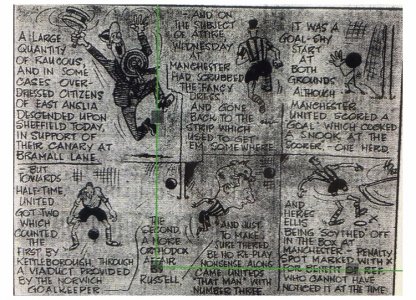 A LARGE
QUANTITY
OF RAUCOUS,
AND IN SOME
CASES OVER-
DRESSED CITIZENS
OF EAST ANGLIA
DESCENDED UPON
SHEFFIELD TODAY,
IN SUPPORT OF
THEIR CANARY AT
BRAMALL LANE.
-AND ON
THE SUBJECT
OF ATTIRE,
WEDNESDAY
MANCHESTER
HAD SCRUBBED
THE FANCY
DRESS
AND GONE
BACK TO THE
STRIP WHICH
USED TO GET
'EM SOMEWHERE
IT WAS A
GOAL-SHY
START
AT
BOTH
GROUNDS
ALTHOUGH
MANCHESTER
UNITED SCORED A
GOAL WHICH COOKED
A SNOOK AT THE
SCORER,- ONE HERD.
BUT
TOWARDS
HALF-TIME
UNITED
GOT TWO
WHICH
COUNTED
THE
FIRST BY
KETTLEBOROUGH THROUGH
A VIADUCT PROVIDED
BY THE NORWICH
GOALKEEPER
THE
SECOND
A MORE
ORTHODOX
AFFAIR
RUSSELL
-AND JUST
TO MAKE
SURE THERE'D
BE NO RE-PLAY
NONSENSE ALONG
CAME UNITED'S
"THAT MAN" WITH
NUMBER THREE.
AND
HERE'S
ELLIS
BEING 'SCYTHED' OFF
IN THE BOX AT
MANCHESTER - PENALTY
SPOT MARKED WITH X
FOR BENEFIT OF REF.
WHO CANNOT HAVE
NOTICED IT AT THE TIME.